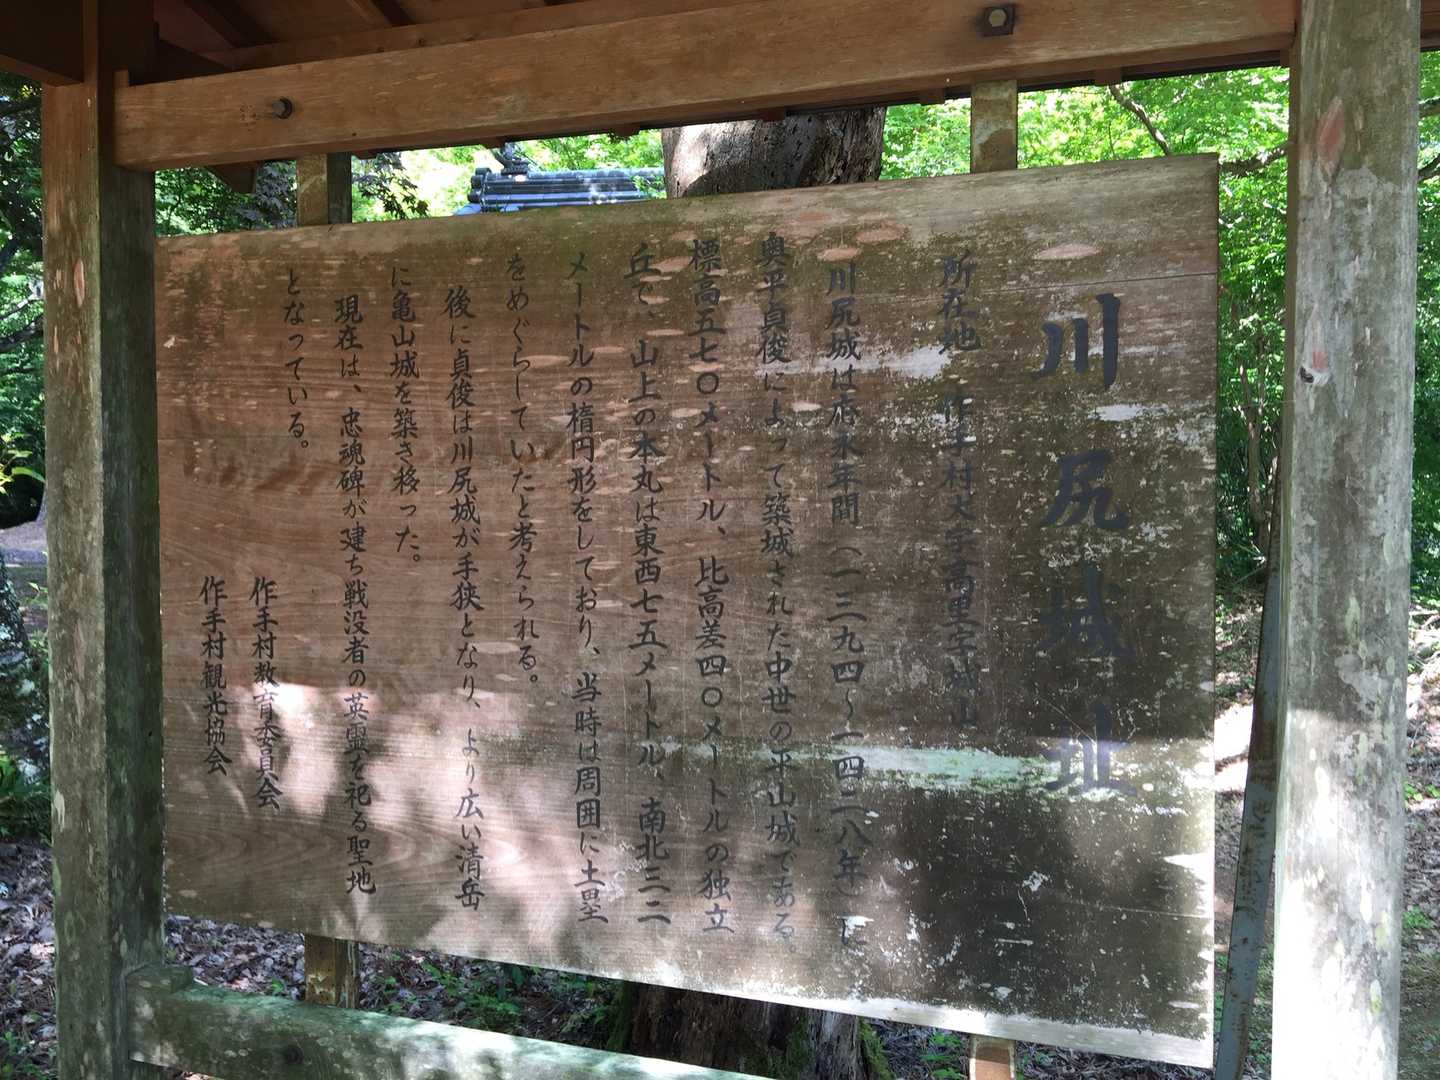 川尻城址
所在地　作手村大字高里字城山
川尻城は応永年間（一三九四～一四二八年）に
奥平貞俊によって築城された中世の平山城である
標高五七〇メートル、比高差四〇メートルの独立
丘で、山上の本丸は東西七五メートル、南北三二
メートルの楕円形をしており、当時は周囲に土塁
をめぐらしていたと考えられる。
後に貞俊は川尻城が手狭となり、より広い清岳
に亀山城を築き移った。
現在は、忠魂碑が建ち戦没者の英霊を祀る聖地
となっている。
作手村教育委員会
作手村観光協会